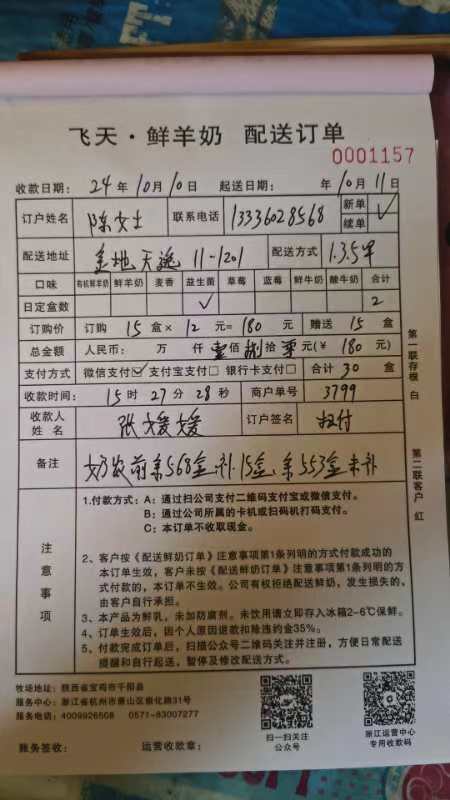 飞天·鲜羊奶 配送订单
0001157
收款日期： 24 年 10 月 10 日 起送日期： 年 10 月 11 日
订户姓名 陈女士 联系电话 13336028568 新单 ✓ 续单
配送地址 金地天逸 11-1201 配送方式 1.3.5早
口味 有机鲜羊奶 鲜羊奶 麦香 益生菌 草莓 蓝莓 鲜牛奶 酸牛奶 合计
日定盒数 ✓ 2
订购价 订购 15 盒× 12 元= 180 元 赠送 15 盒
总金额 人民币： 万 仟 壹佰 捌拾 零元(¥ 180 元)
支付方式 微信支付☑ 支付宝支付□ 银行卡支付□ 合计 30 盒
收款时间： 15 时 27 分 28 秒 商户单号 3799
收款人姓名 张媛媛 订户签名 扫付
备注 奶农前余568盒,补15盒,余553盒未补
第一联存根 白
第二联客户 红
注意事项
1.付款方式：A：通过扫公司支付二维码支付宝或微信支付。
B：通过公司所属的卡机或扫码机打码支付。
C：本订单不收取现金。
2、客户按《配送鲜奶订单》注意事项第1条列明的方式付款成功的
本订单生效，客户未按《配送鲜奶订单》注意事项第1条列明的方
式付款的，本订单不生效。公司有权拒绝配送鲜奶，发生损失的，
由客户自行承担。
3、本产品为鲜乳，未加防腐剂。未饮用请立即存入冰箱2-6℃保鲜。
4、订单生效后，因个人原因退款扣除违约金35%。
5、付款完成订单后，扫描公众号二维码关注并注册，方便日常配送
提醒和自行起送，暂停及修改配送方式。
牧场地址：陕西省宝鸡市千阳县
服务中心：浙江省杭州市萧山区崇化路31号
服务电话：4009926508 0571-83007277
扫一扫关注
公众号
浙江运营中心
专用收款码
账务签收： 运营收款章：